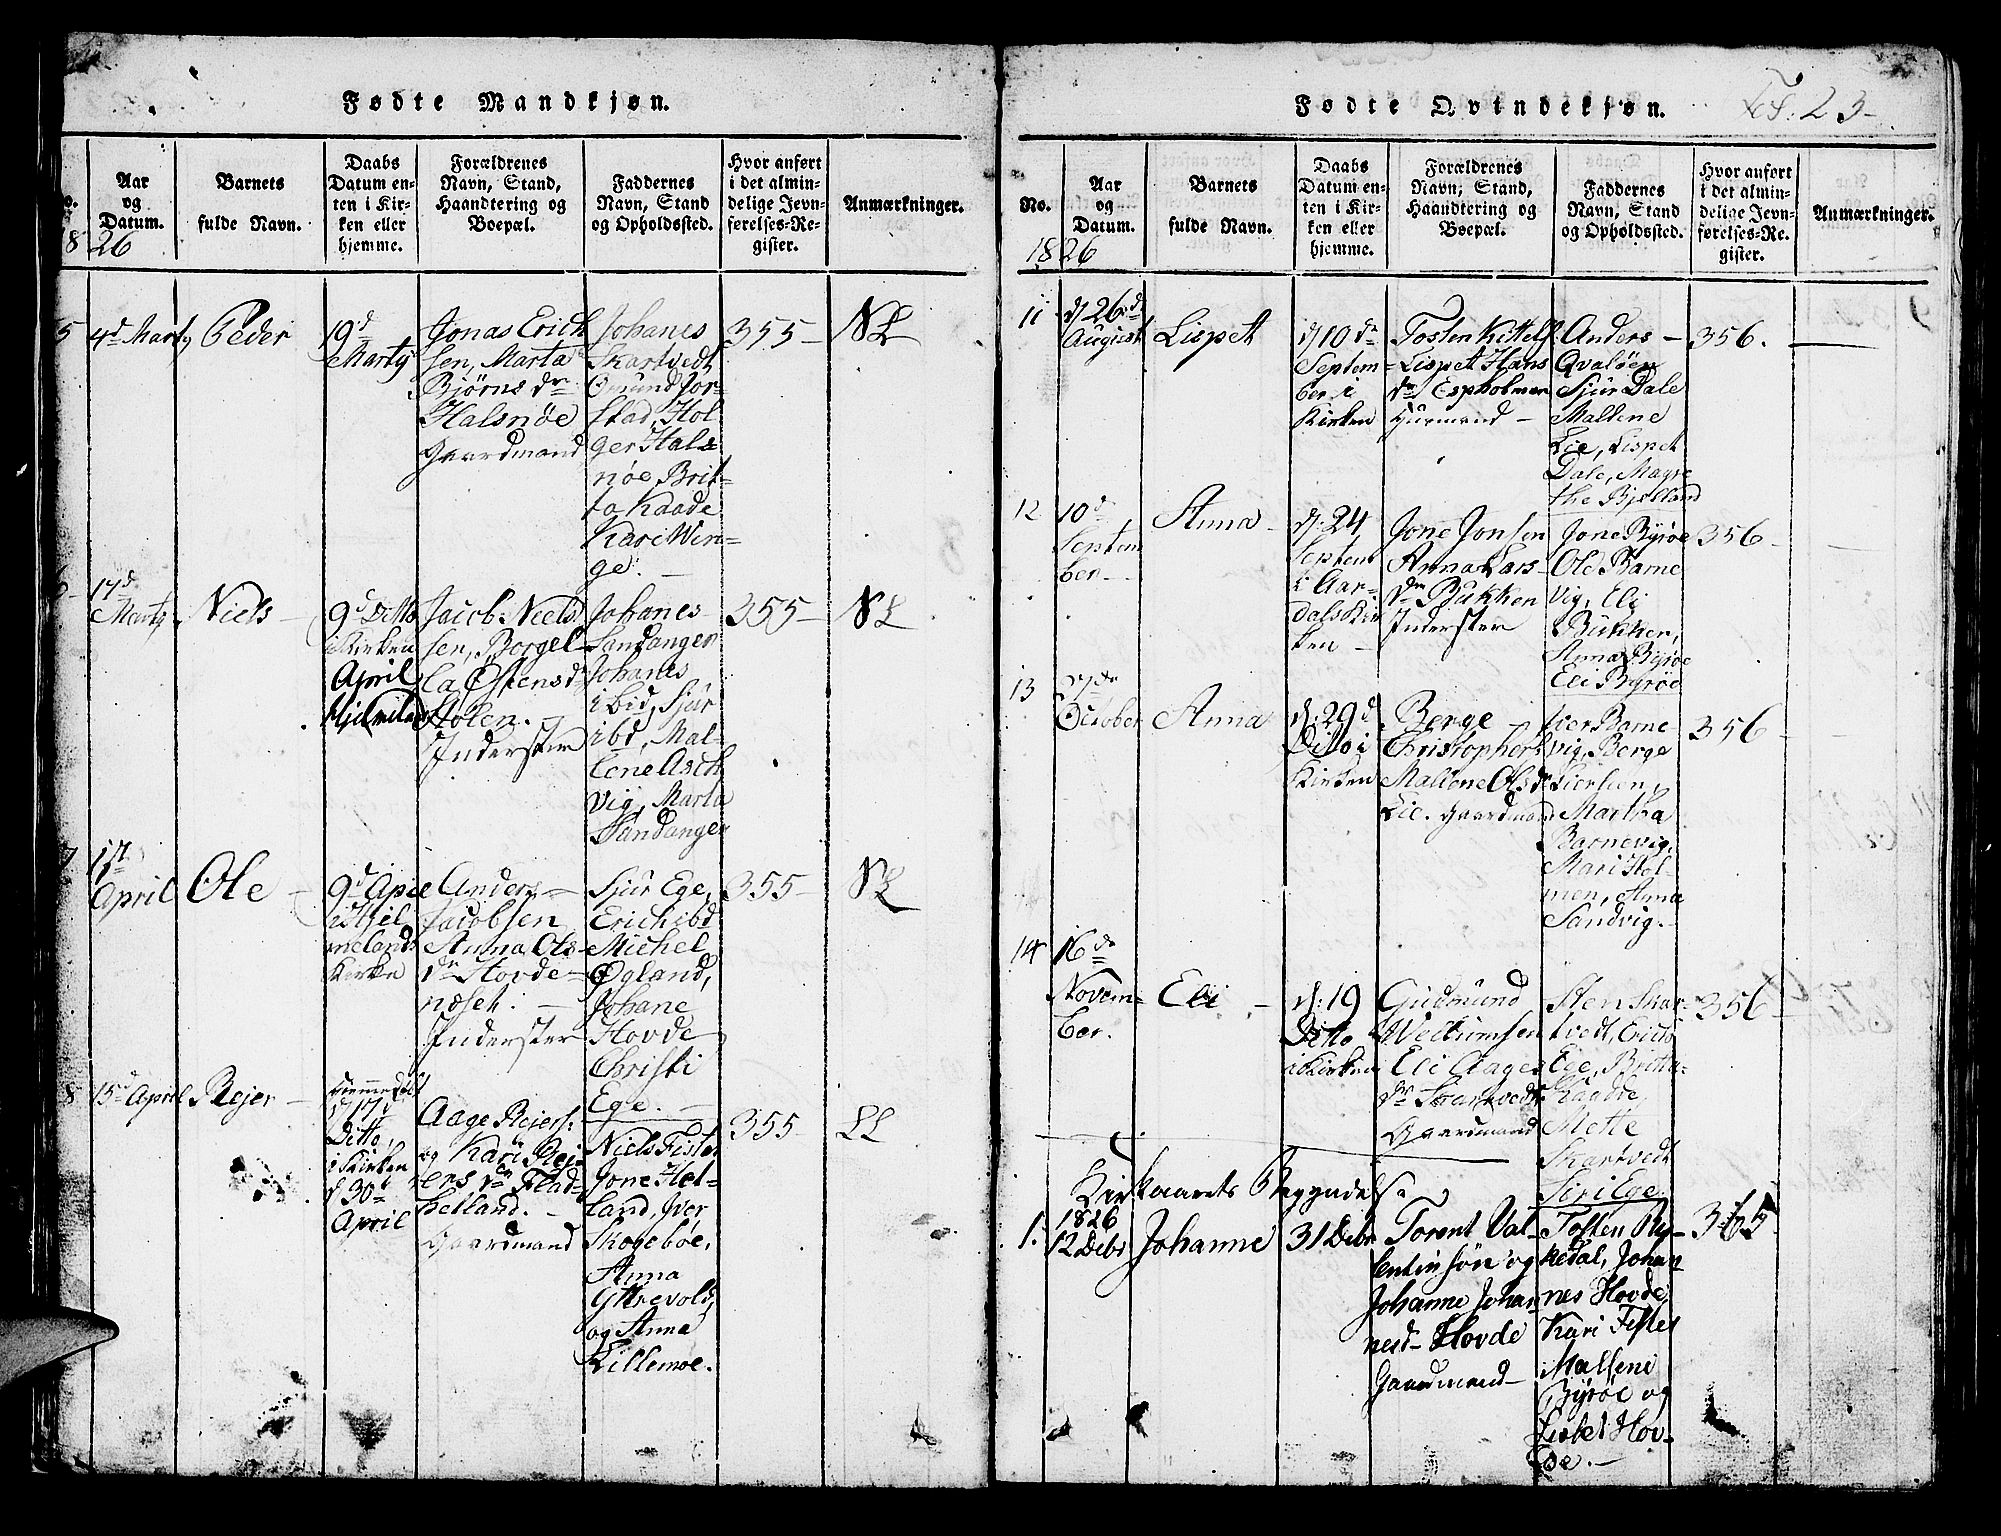 Fødte Mandkjøn.
No.
Aar
og
Datum.
Barnets
fulde Navn.
Daabs
Datum en-
ten i Kir-
ken eller
hjemme.
Forældrenes
Navn, Stand,
Haandtering og
Boepæl.
Faddernes
Navn, Stand
og Opholdssted.
Hvor anført
i det almin-
delige Jevn-
førelses-Re-
gister.
Anmærkninger.
1826
5
4d Marty
Peder
19d
Marty
Jonas Erich
sen, Marta
Bjørns dr
Halsnøe
Gaardmand
Johanes
Skartvedt
Omund Jor-
stad, Hol
ger Hals
nøe, Brit-
ta Kaade
Kari Win-
ge.
355
NL
6
17d
Marty
Niels
9d Ditto
i Kirken
April
Hjelmeland
Jacob Niels
sen, Borgel
la Østens d
Stølen.
Inderster
Johanes
Sandanger
Johanes
ibid, Sjur
ibd, Mal-
lene Asch
vig, Marta
Sandanger
355
NL
7
1st
April
Ole
9d April
i Hjel
melands
Kirke
Anders
Jacobsen
Anna Ols
dr Hovde-
næset.
Inderster
Sjur Ege,
Erich ibd
Michel
Øgland,
Johane
Hovde
Christi
Ege.
355
NL
8
15d April
Rejer
Hjemmedøbt
d 17d
Ditto,
i Kirken
d 30d
April
Aage Reiers:
og Kari Rej
ers dr Flad-
helland.
Gaardmand
Niels Fister
Jone Hel-
land, Iver
Skogebøe,
Anna
Yttrevold,
og Anna
Lillemoe.
355
LL
Fødte Qvindekjøn.
Fol. 23
No.
Aar
og
Datum.
Barnets
fulde Navn.
Daabs
Datum en-
ten i Kir-
ken eller
hjemme.
Forældrenes
Navn, Stand,
Haandtering og
Boepæl.
Faddernes
Navn, Stand
og Opholdssted.
Hvor anført
i det almin-
delige Jevn-
førelses-Re-
gister.
Anmærkninger.
1826
11
d 26d
August
Lispet
d 10de
Septem-
ber i
Kirken
Tosten Kittels
Lispet Hans
dr Espholmen
Huusmand
Anders
Qvaløen
Sjur Dale
Mallene
Lie, Lispet
Dale, Magre
the Bjelland
356.
12
10d
Septem
ber
Anna
d: 24
Septem
i Aar-
dals Kir
ken
Jone Jonsen
Anna Lars-
dr Bukken
Inderster
Jone Byrøe
Ole Barne
vig, Eli
Bukken,
Anna Byrøe
Eli Byrøe
356
13
October
Anna
d: 29d
Ditto i
Kirken
Berge
Christophers
Mallene Ols dr
Lie. Gaardmand
Iver Barne
vig, Berge
Martha
Barnevig,
Mari Hol-
men, Anna
Sandvig.
356
14
16de
Novem-
ber.
Eli
d: 19
Ditto
i Kirken
Gudmund
Eli Aages
dr Skartvedt
Gaardmand
Sten Skar-
tvedt, Erich
Eie, Britta
Mette
Skartvedt
Siri Ege
356
Kirkeaarets Begyndelse
1.
1826
12 Debr
Johanne
31 Debr
Torent Val-
entinsøn og
Johanne Johan
nesd Hovde
Gaardmand
Tosten Ry-
kedal, Johan
nes Hovde
Kari Fister
Mallene
Byrøe og
Lisbet Hov-
de.
365